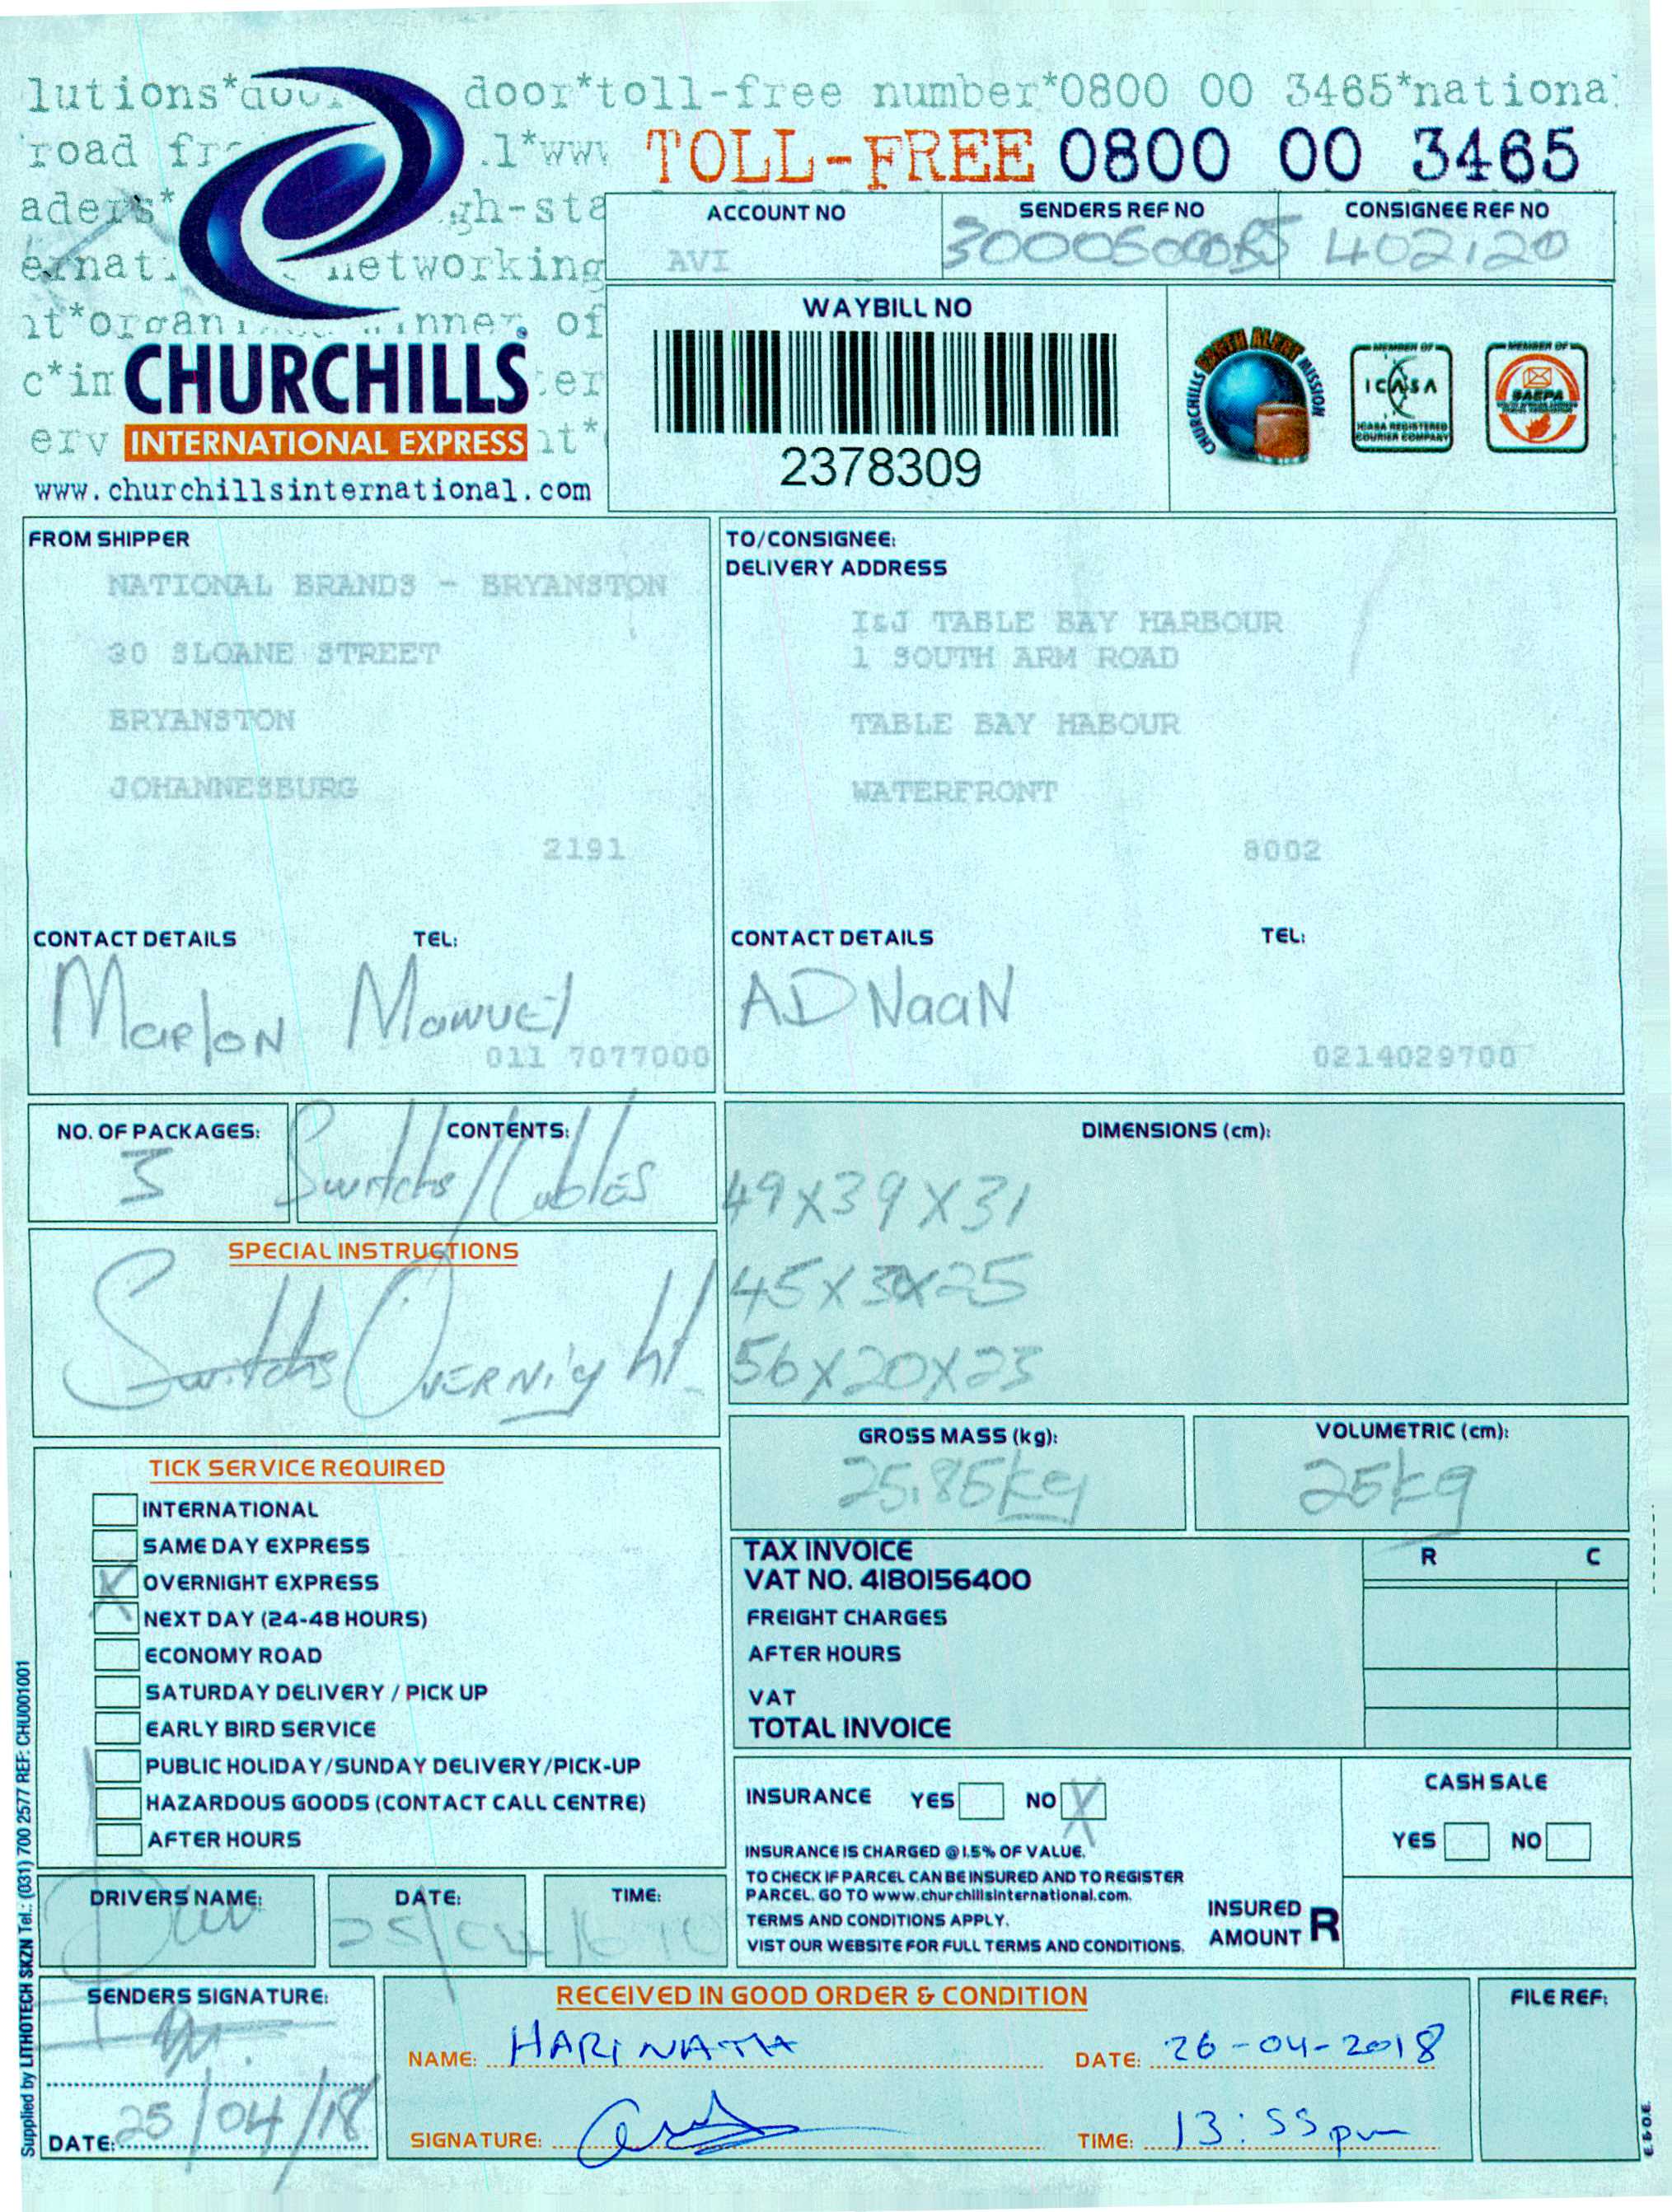 door*toll-free number*0800 00 3465*national
road
TOLL-FREE 0800 00 3465
networking
of
CHURCHILLS
INTERNATIONAL EXPRESS
www.churchillsinternational.com
ACCOUNT NO
AVI
SENDERS REF NO
CONSIGNEE REF NO
402120
WAYBILL NO
2378309
CHURCHILLS EARTH ALERT MISSION
MEMBER OF
ICASA
ICASA REGISTERED
COURIER COMPANY
MEMBER OF
SAEPA
FROM SHIPPER
NATIONAL BRANDS - BRYANSTON
30 SLOANE STREET
BRYANSTON
JOHANNESBURG
2191
CONTACT DETAILS TEL:
Marlon Manuel
011 7077000
TO/CONSIGNEE:
DELIVERY ADDRESS
I&J TABLE BAY HARBOUR
1 SOUTH ARM ROAD
TABLE BAY HABOUR
WATERFRONT
8002
CONTACT DETAILS TEL:
ADNaaN
0214029700
NO. OF PACKAGES:
3
CONTENTS:
Switchs/Cables
DIMENSIONS (cm):
49X39X31
45X3 X25
56X20X23
SPECIAL INSTRUCTIONS
Switchs Overnight
GROSS MASS (kg):
25,85kg
VOLUMETRIC (cm):
25kg
TICK SERVICE REQUIRED
INTERNATIONAL
SAME DAY EXPRESS
X OVERNIGHT EXPRESS
NEXT DAY (24-48 HOURS)
ECONOMY ROAD
SATURDAY DELIVERY / PICK UP
EARLY BIRD SERVICE
PUBLIC HOLIDAY/SUNDAY DELIVERY/PICK-UP
HAZARDOUS GOODS (CONTACT CALL CENTRE)
AFTER HOURS
TAX INVOICE R C
VAT NO. 4180156400
FREIGHT CHARGES
AFTER HOURS
VAT
TOTAL INVOICE
INSURANCE YES NO X
INSURANCE IS CHARGED @1.5% OF VALUE.
TO CHECK IF PARCEL CAN BE INSURED AND TO REGISTER
PARCEL, GO TO www.churchillsinternational.com.
TERMS AND CONDITIONS APPLY.
VIST OUR WEBSITE FOR FULL TERMS AND CONDITIONS.
INSURED
AMOUNT R
CASH SALE
YES NO
DRIVERS NAME:
DATE:
25/04
TIME:
SENDERS SIGNATURE:
DATE: 25/04/18
RECEIVED IN GOOD ORDER & CONDITION
NAME: HARINATH
DATE: 26-04-2018
SIGNATURE:
TIME: 13:55pm
FILE REF:
E.&O.E.
Supplied by LITHOTECH SKZN Tel.: (031) 700 2577 REF: CHU001001